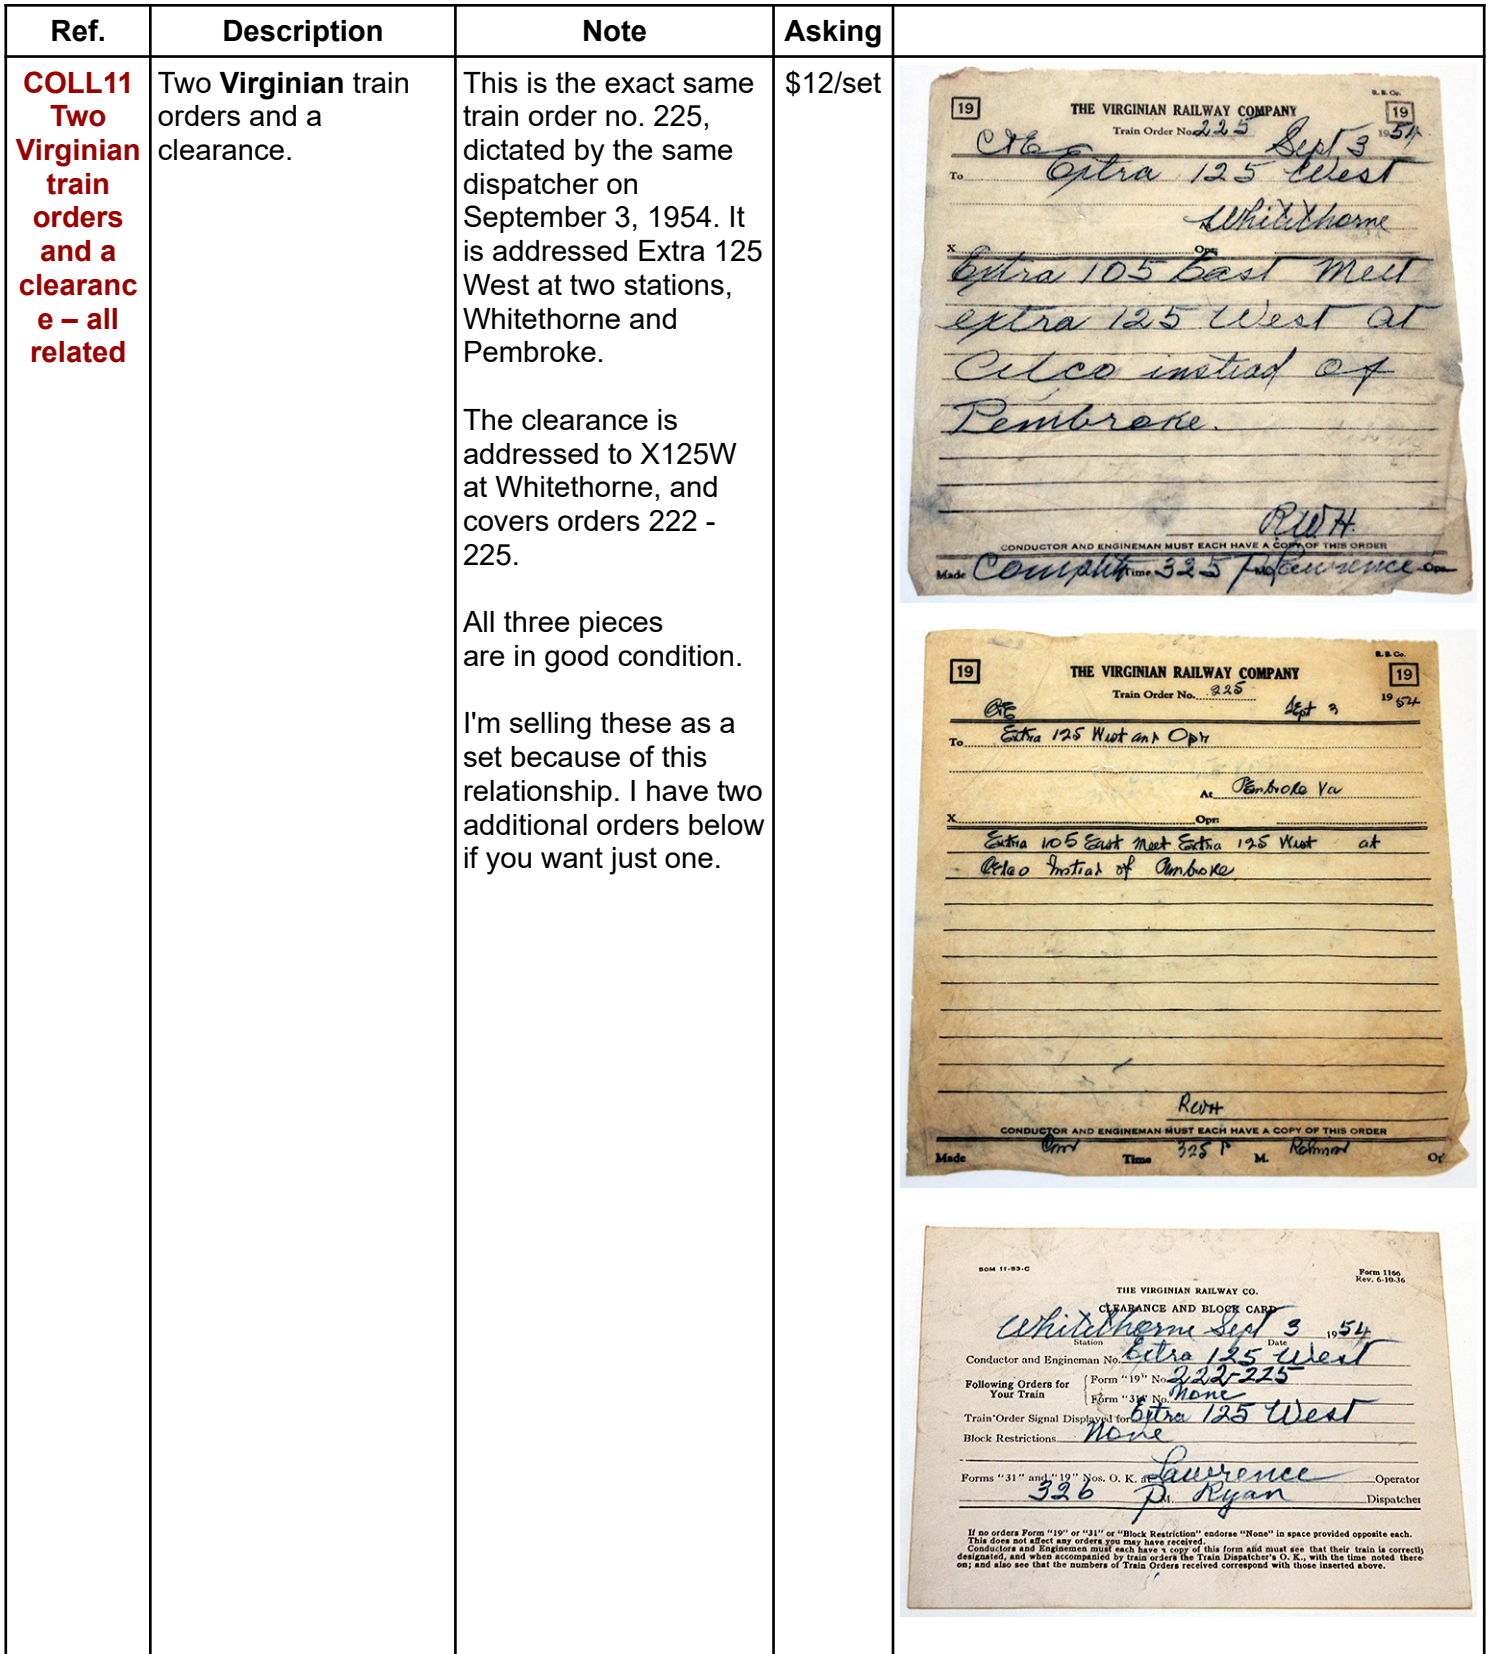 Ref.
Description
Note
Asking
COLL11
Two
Virginian
train
orders
and a
clearanc
e – all
related
Two Virginian train
orders and a
clearance.
This is the exact same
train order no. 225,
dictated by the same
dispatcher on
September 3, 1954. It
is addressed Extra 125
West at two stations,
Whitethorne and
Pembroke.
The clearance is
addressed to X125W
at Whitethorne, and
covers orders 222 -
225.
All three pieces
are in good condition.
I'm selling these as a
set because of this
relationship. I have two
additional orders below
if you want just one.
$12/set
R. B. Co.
19 THE VIRGINIAN RAILWAY COMPANY 19
Train Order No. 225
C&E Sept 3 1954
To Extra 125 West
Whitethorne
X Opr.
Extra 105 East Meet
extra 125 West at
Celco instead of
Pembroke.
RWH
CONDUCTOR AND ENGINEMAN MUST EACH HAVE A COPY OF THIS ORDER
Made Complete Time 325 P M. Lawrence Opr.
R. B. Co.
19 THE VIRGINIAN RAILWAY COMPANY 19
Train Order No. 225
C&E Sept 3 1954
To Extra 125 West and Opr
At Pembroke Va
X Opr.
Extra 105 East Meet Extra 125 West at
Celco Instead of Pembroke
RWH
CONDUCTOR AND ENGINEMAN MUST EACH HAVE A COPY OF THIS ORDER
Made Com Time 325 P M. Op
50M 11-53-C Form 1166
Rev. 6-10-36
THE VIRGINIAN RAILWAY CO.
CLEARANCE AND BLOCK CARD
Whitethorne Sept 3 1954
Station Date
Conductor and Engineman No. Extra 125 West
Following Orders for Your Train
Form "19" No. 222-225
Form "31" No. None
Train Order Signal Displayed for Extra 125 West
Block Restrictions None
Forms "31" and "19" Nos. O. K. at Lawrence Operator
326 P M. Ryan Dispatcher
If no orders Form "19" or "31" or "Block Restriction" endorse "None" in space provided opposite each.
This does not affect any orders you may have received.
Conductors and Enginemen must each have a copy of this form and must see that their train is correctly
designated, and when accompanied by train orders the Train Dispatcher's O. K., with the time noted there-
on; and also see that the numbers of Train Orders received correspond with those inserted above.